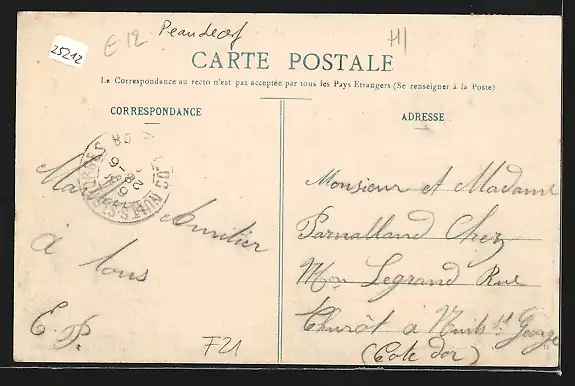 25212
E 12
Peaudecerf
CARTE POSTALE
La Correspondance au recto n'est pas acceptée par tous les Pays Etrangers (Se renseigner à la Poste)
CORRESPONDANCE
Amitier
à tous
E. P.
F21
ADRESSE
Monsieur et Madame
Parnalland Chez
Mon Legrand Rue
Thurôt à Nuits st George
(Cote dor)